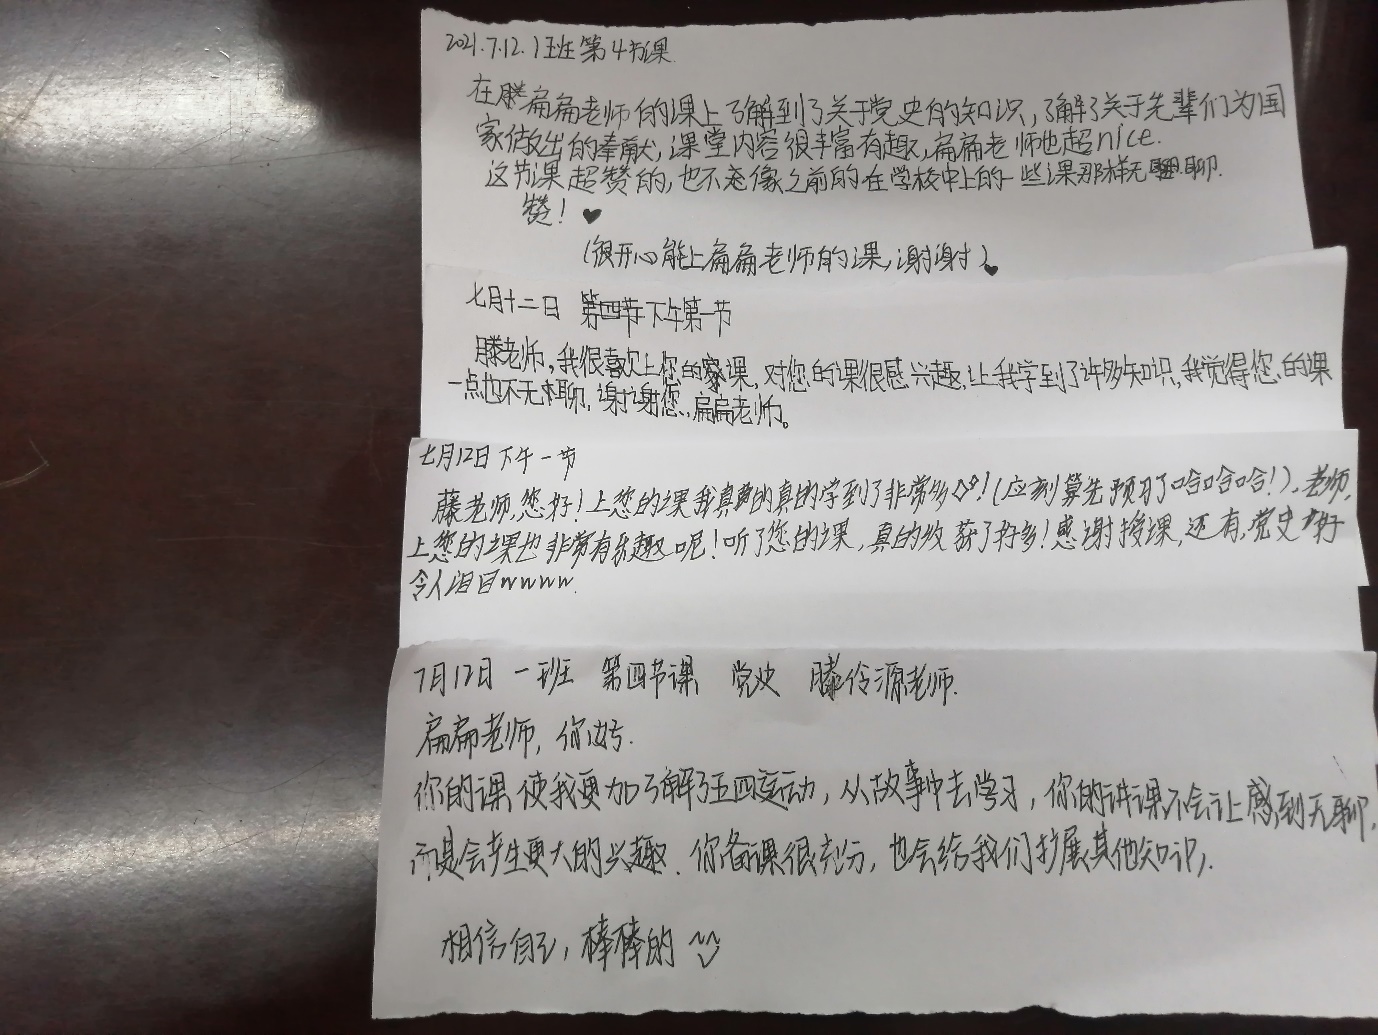 2021.7.12. 1班第4节课
在滕扁扁老师的课上了解到了关于党史的知识,了解了关于先辈们为国
家做出的奉献,课堂内容很丰富有趣,扁扁老师也超nice.
这节课超赞的,也不像之前的在学校中上的一些课那样无聊.
赞!♥
(很开心能上扁扁老师的课,谢谢)♥
七月十二日 下午第一节
滕老师,我很喜欢上您的课,对您的课很感兴趣,让我学到了许多知识,我觉得您的课
一点也不无聊,谢谢您,扁扁老师。
七月12日下午一节
藤老师,您好!上您的课我真的真的学到了非常多!(应刻算先预习了哈哈哈!),老师,
上您的课也非常有乐趣呢!听了您的课,真的收获了好多!感谢授课,还有,党史好
令人泪目wwww.
7月12日 一班 第四节课 党史 滕伶源老师.
扁扁老师,你好.
你的课使我更加了解了五四运动,从故事中去学习,你的讲课不会让感到无聊,
而是会产生更大的兴趣.你备课很充分,也会给我们扩展其他知识,.
相信自己,棒棒的